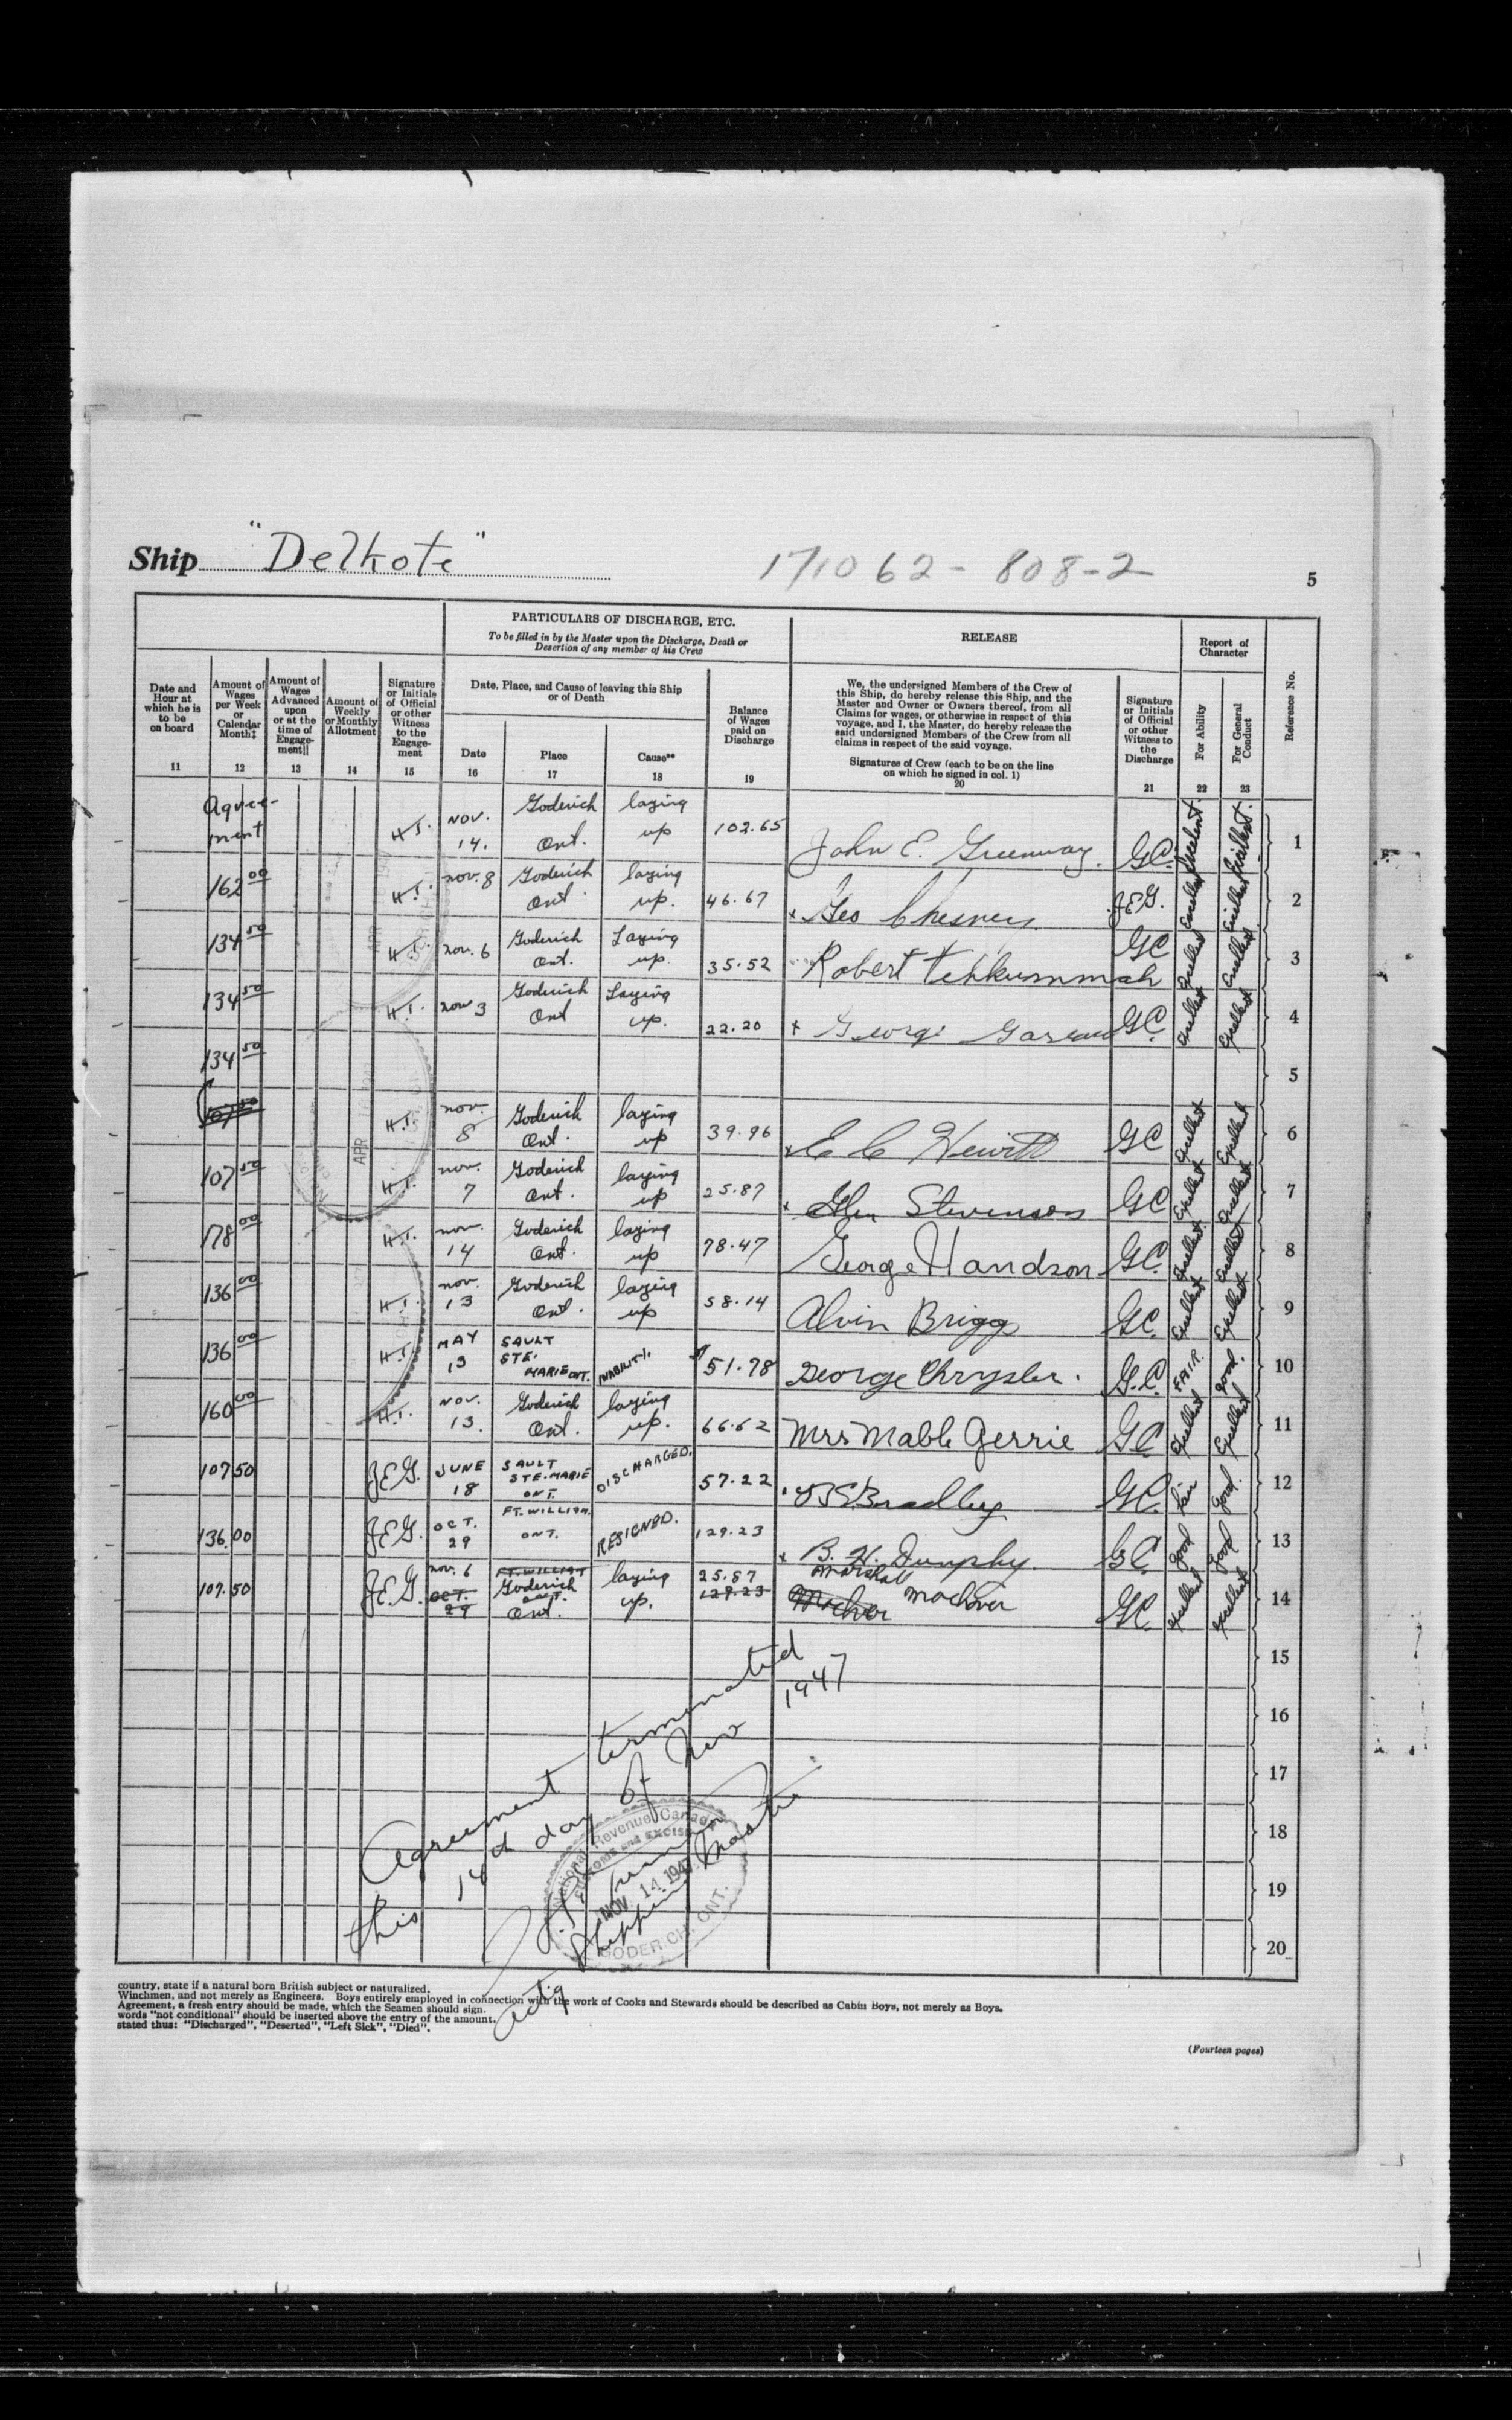 Ship "Delkote"
171062 - 808-2
5
PARTICULARS OF DISCHARGE, ETC.
To be filled in by the Master upon the Discharge, Death or
Desertion of any member of his Crew
RELEASE
Report of
Character
Date and
Hour at
which he is
to be
on board
11
Amount of
Wages
per Week
or
Calendar
Month‡
12
Amount of
Wages
Advanced
upon
or at the
time of
Engage-
ment||
13
Amount of
Weekly
or Monthly
Allotment
14
Signature
or Initials
of Official
or other
Witness
to the
Engage-
ment
15
Date, Place, and Cause of leaving this Ship
or of Death
Date
16
Place
17
Cause**
18
Balance
of Wages
paid on
Discharge
19
We, the undersigned Members of the Crew of
this Ship, do hereby release this Ship, and the
Master and Owner or Owners thereof, from all
Claims for wages, or otherwise in respect of this
voyage, and I, the Master, do hereby release the
said undersigned Members of the Crew from all
claims in respect of the said voyage.
Signatures of Crew (each to be on the line
on which he signed in col. 1)
20
Signature
or Initials
of Official
or other
Witness to
the
Discharge
21
For Ability
22
For General
Conduct
23
Reference No.
Agree-
ment H.T. Nov. 14. Goderich Ont. laying up 102.65 John E. Greenway. GC. Excellent Excellent. 1
162 00 H.T. nov. 8 Goderich Ont. laying up. 46.67 x Geo Chesney JEG. Excellent Excellent 2
134 50 H.T. nov. 6 Goderich Ont. Laying up. 35.52 Robert Tehkummah GC Excellent Excellent 3
134 50 H.T. nov 3 Goderich Ont Laying up. 22.20 x George GC. Excellent Excellent 4
134 50 5
107 50 H.T. nov. 8 Goderich Ont. laying up 39.96 x E C Hewitt GC Excellent Excellent 6
107 50 H.T. nov. 7 Goderich Ont. laying up 25.87 x Glen Stevenson GC Excellent Excellent 7
178 00 H.T. nov. 14 Goderich Ont. laying up 78.47 George Handson GC. Excellent Excellent 8
136 00 H.T. nov. 13 Goderich Ont. laying up 58.14 Alvin Briggs GC. Excellent Excellent 9
136 00 H.T. MAY 13 SAULT STE. MARIE ONT. INABILITY. 51.78 George Chrysler. G.C. FAIR. Good. 10
160 00 H.T. NOV. 13. Goderich Ont. laying up. 66.62 Mrs Mable Gerrie GC Excellent Excellent 11
107 50 JEG. JUNE 18 SAULT STE. MARIE ONT. DISCHARGED. 57.22 Bradley GC. fair Good. 12
136.00 JEG. OCT. 29 FT. WILLIAM. ONT. RESIGNED. 129.23 x B. H. Dunphy. GC. Good Good 13
107.50 JEG. nov. 6 OCT. 29 FT. WILLIAM Goderich ONT. Ont. laying up. 25.87 129.23 Marshall Machver Machover GC. Excellent Excellent 14
15
16
17
18
19
20
Agreement terminated
this 14th day of Nov 1947
Shipping Master
Actg
National Revenue, Canada
CUSTOMS and EXCISE
NOV 14 1947
GODERICH, ONT.
APR
APR
country, state if a natural born British subject or naturalized.
Winchmen, and not merely as Engineers. Boys entirely employed in connection with the work of Cooks and Stewards should be described as Cabin Boys, not merely as Boys.
Agreement, a fresh entry should be made, which the Seamen should sign.
words "not conditional" should be inserted above the entry of the amount.
stated thus: "Discharged", "Deserted", "Left Sick", "Died".
(Fourteen pages)